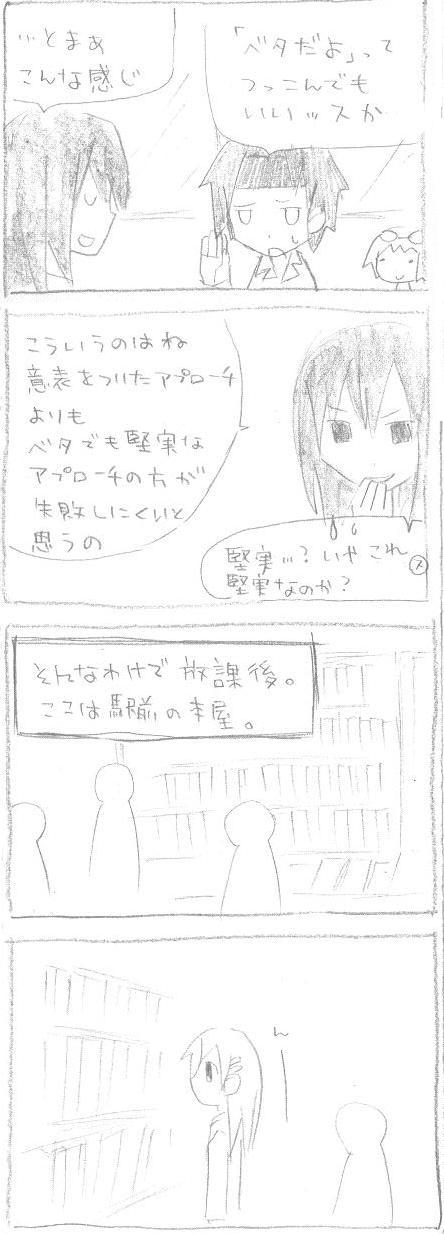 …とまぁ
こんな感じ
「ベタだよ」って
つっこんでも
いいッスか
こういうのはね
意表をついたアプローチ
よりも
ベタでも堅実な
アプローチの方が
失敗しにくいと
思うの
堅実…?いやこれ
堅実なのか?
そんなわけで放課後。
ここは駅前の本屋。
んー